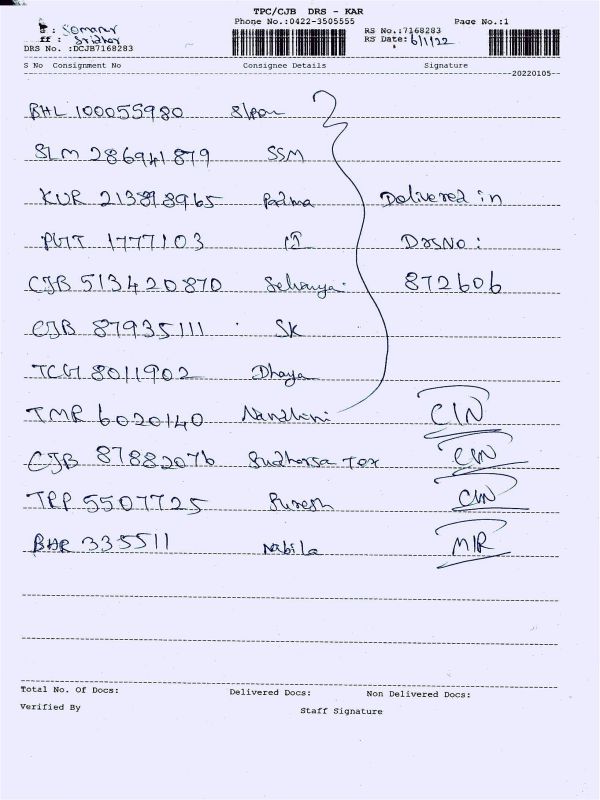 TPC/CJB DRS - KAR
Phone No.:0422-3505555
RS No.:7168283
Page No.:1
: Somanur
ff : Sridhar
RS Date: 6/1/22
DRS No. :DCJB7168283
S No Consignment No Consignee Details Signature
20220105
BHL 100055980
SLM 286941879 SSM
KUR 213898965 Padma Delivered in
1777103 DrsNo :
CJB 513420870 872606
CJB 87935111 SK
TCG 8011902 Dhaya
TMR 6020140 Nandhini CIN
CJB 87882076 Sudharsa Tex CIN
TRP 5507725 Suresh CIN
BHR 335511 Nabila MIR
Total No. Of Docs: Delivered Docs: Non Delivered Docs:
Verified By Staff Signature